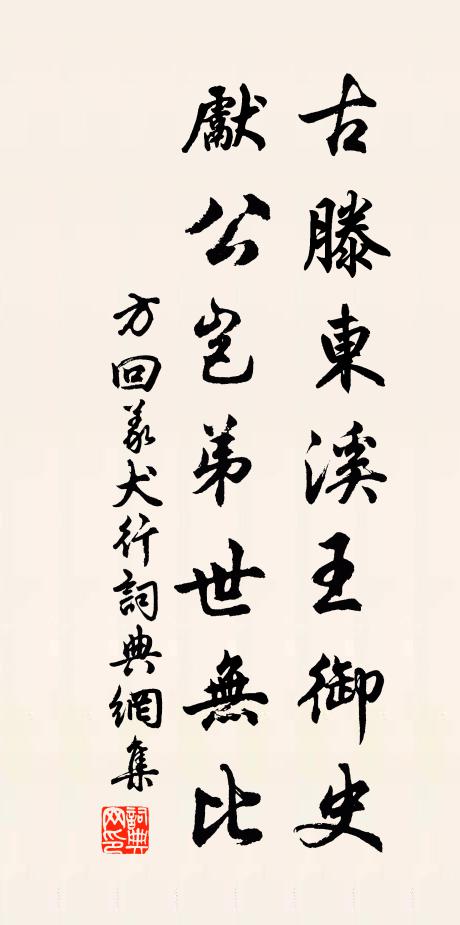 古滕東溪王御史
獻公岂弟世無比
方回義犬行詞典網集
詞典网印